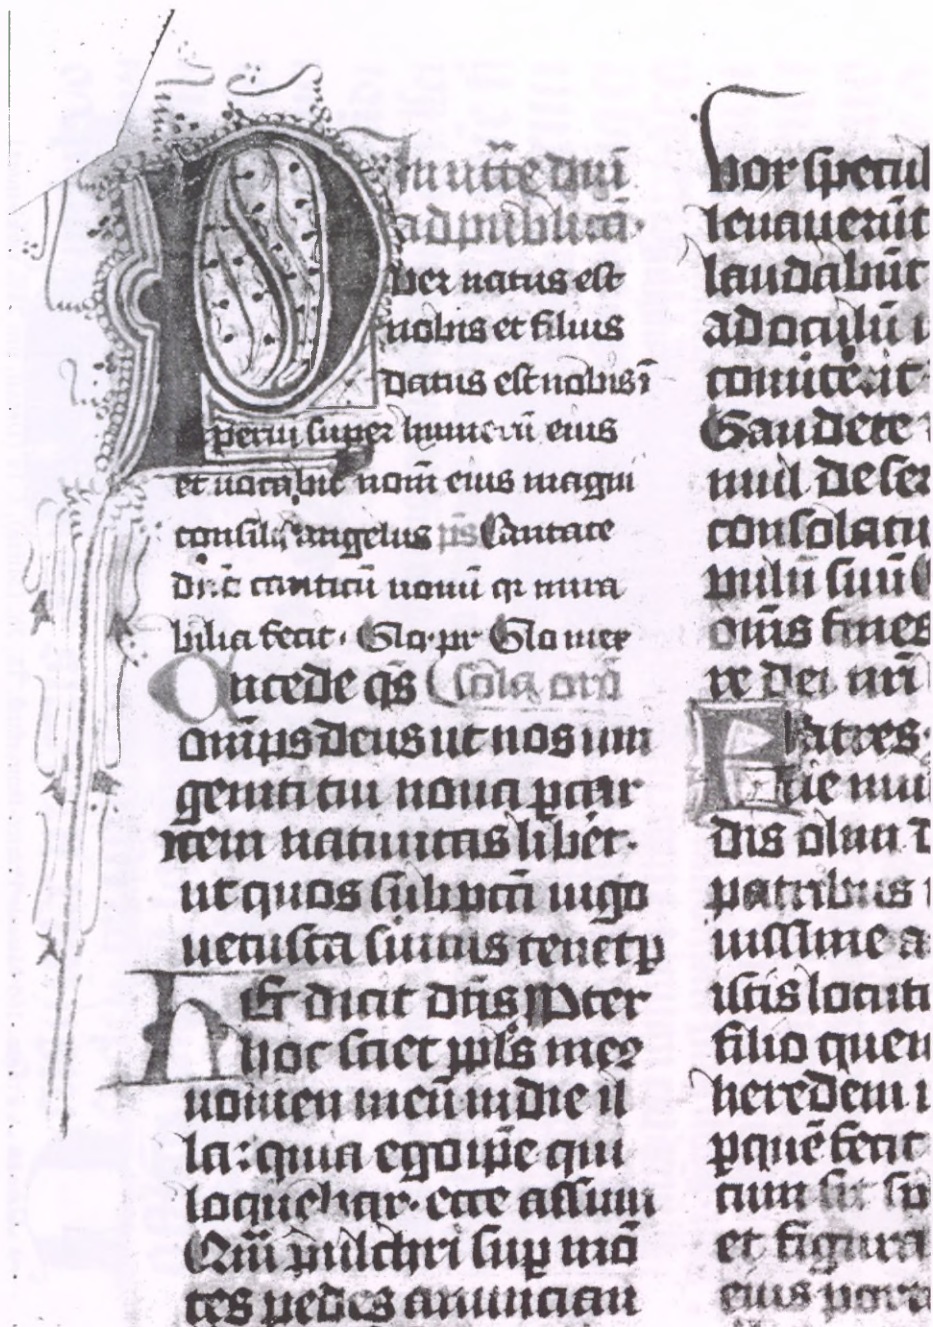 In nātē dnī
ad publicā
P
uer natus est
nobis et filius
datus est nobis ī
periu super humerū eius
et vocabit nom̄ eius magni
consilij angelus ps Cantate
dn̄o canticū nouū qr mira
bilia fecit. Glo. pr Glo in ex
Oncede qs sola orō
om̄ps deus ut nos uni
geniti tui noua per car
nem natiuitas liberet.
ut quos sub pctī iugo
uetusta seruitus tenet p
Hec dicit dn̄s Propter
hoc sciet ppls meus
nomen meū in die il
la: quia ego ipse qui
loquebar. ecce assum
Qm̄ pulchri sup mō
tes pedes anuncian
vox specul
leuauerūt
laudabūt
ad oculū
conuterit
Gaudete
mul deser
consolatu
pulū suū
om̄s fines
re dei nr̄i
Fratres.
rie mu
dis olim
patribus
uissime
istis locuti
filio quem
heredem
p quē fecit
cum sit sp
et figura
eius porta